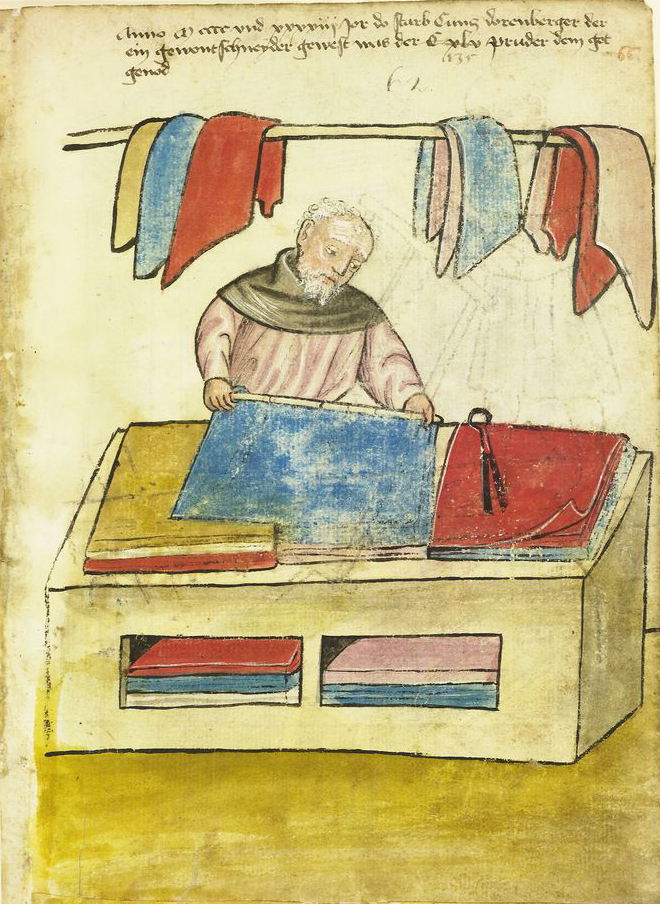 Anno M cccc vnd xxxxiiij Jor do starb Cuntz dorenberger der
ein gewontschneyder gewest was der C xlv pruder dem got
genod
135
66